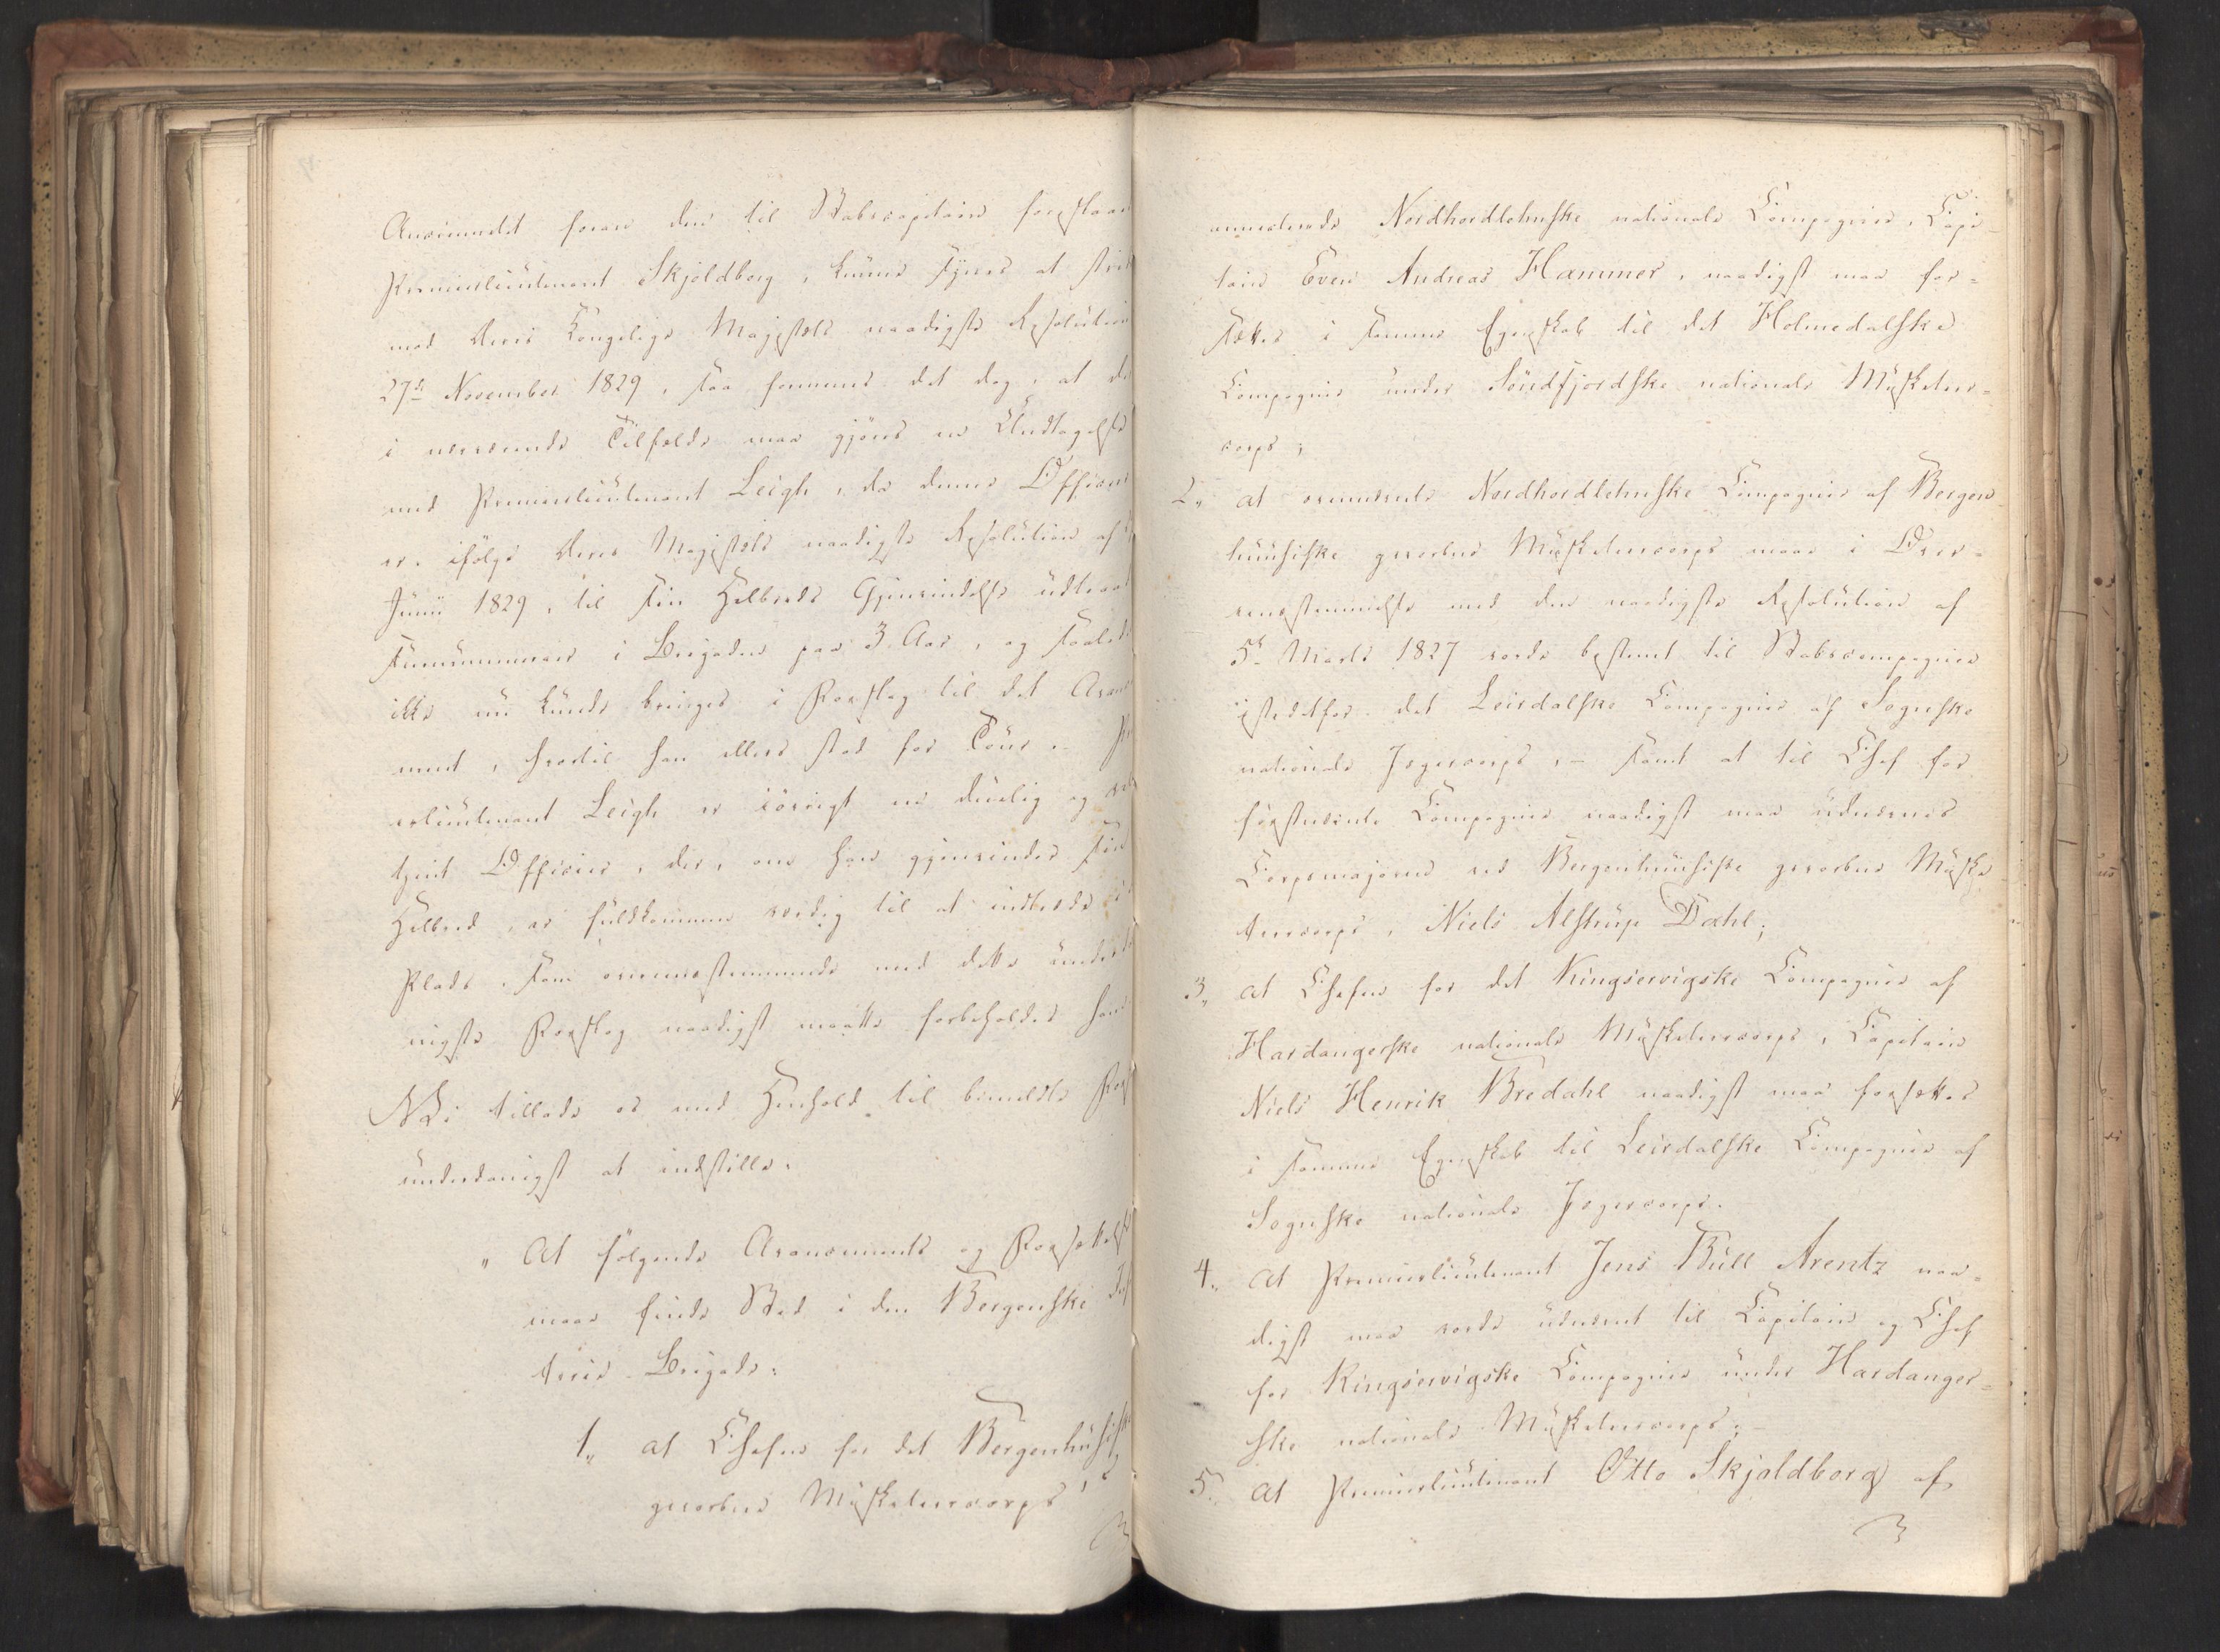 Anciennitet foran den til Stabscapitain foreslaae
Premierlieutenant Skjoldborg, kunne synes at stri
mod Deres Kongelige Majestæts naadigste Resolution
27de November 1829, saa formenes det dog, at de
i nærværende Tilfælde maa gjöres en Undtagelse
med Premierlieutenant Leigh, da denne Officeer
er, ifölge Deres Majestæts naadigste Resolution af
Junii 1829, til sin Helbreds Gjenvindelse udtraadt
Summummer i Brigaden paa 3 Aar, og saaledes
ikke nu kunde bringes i Forslag til det Avance
ment, hvortil han ellers stod for Tour. Pr
erlieutenant Leigh er iövrigt en duelig og vel
tjent Officier, der, om han gjenvinder sin
Helbred, er fuldkommen værdig til at indtræde i
Plads, som overeensstemmende med dette underda
nigste Forslag naadigst maatte forbeholdes ham
Vi tillade os med Henhold til bemeldte For
underdanigst at indstille:
" At fölgende Avancements og Forsættelse
maae finde Sted i den Bergenske Inf
terie Brigade:
1, at Chefen for det Bergenhusiske
gevorbne Musketeercorps's
annecterede Nordhordlehnske nationale Compagnie, Capi-
tain Even Andreas Hammer, naadigst maa for-
sættes i samme Egenskab til det Holmedalske
Compagnie under Söndfjordske nationale Musketeer-
corps;
2, at ommeldte Nordhordlehnske Compagnie af Bergen-
huusiske gevorbne Musketeercorps maa i Over-
eensstemmelse med den naadigste Resolution af
5te Marts 1827 vorde bestemt til Stabscompagnie
istedetfor det Leirdalske Compagnie af Sognske
nationale Jægercorps, – samt at til Chef for
förstnævnte Compagnie naadigst maa udnævnes
Corpsmajoren ved Bergenhuusiske gevorbne Muske
teercorps, Niels Alstrup Dahl;
3, at Chefen for det Kingservigske Compagnie af
Hardangerske nationale Musketeercorps, Capitain
Niels Henrik Bredahl naadigst maa forsættes
i samme Egenskab til Leirdalske Compagnie af
Sognske nationale Jægercorps.
4, at Premierlieutenant Jens Bull Arentz naa-
digst maa vorde udnævnt til Capitain og Chef
for Kingservigske Compagnie under Hardanger-
ske nationale Musketeercorps; –
5, at Premierlieutenant Otto Skjoldborg af